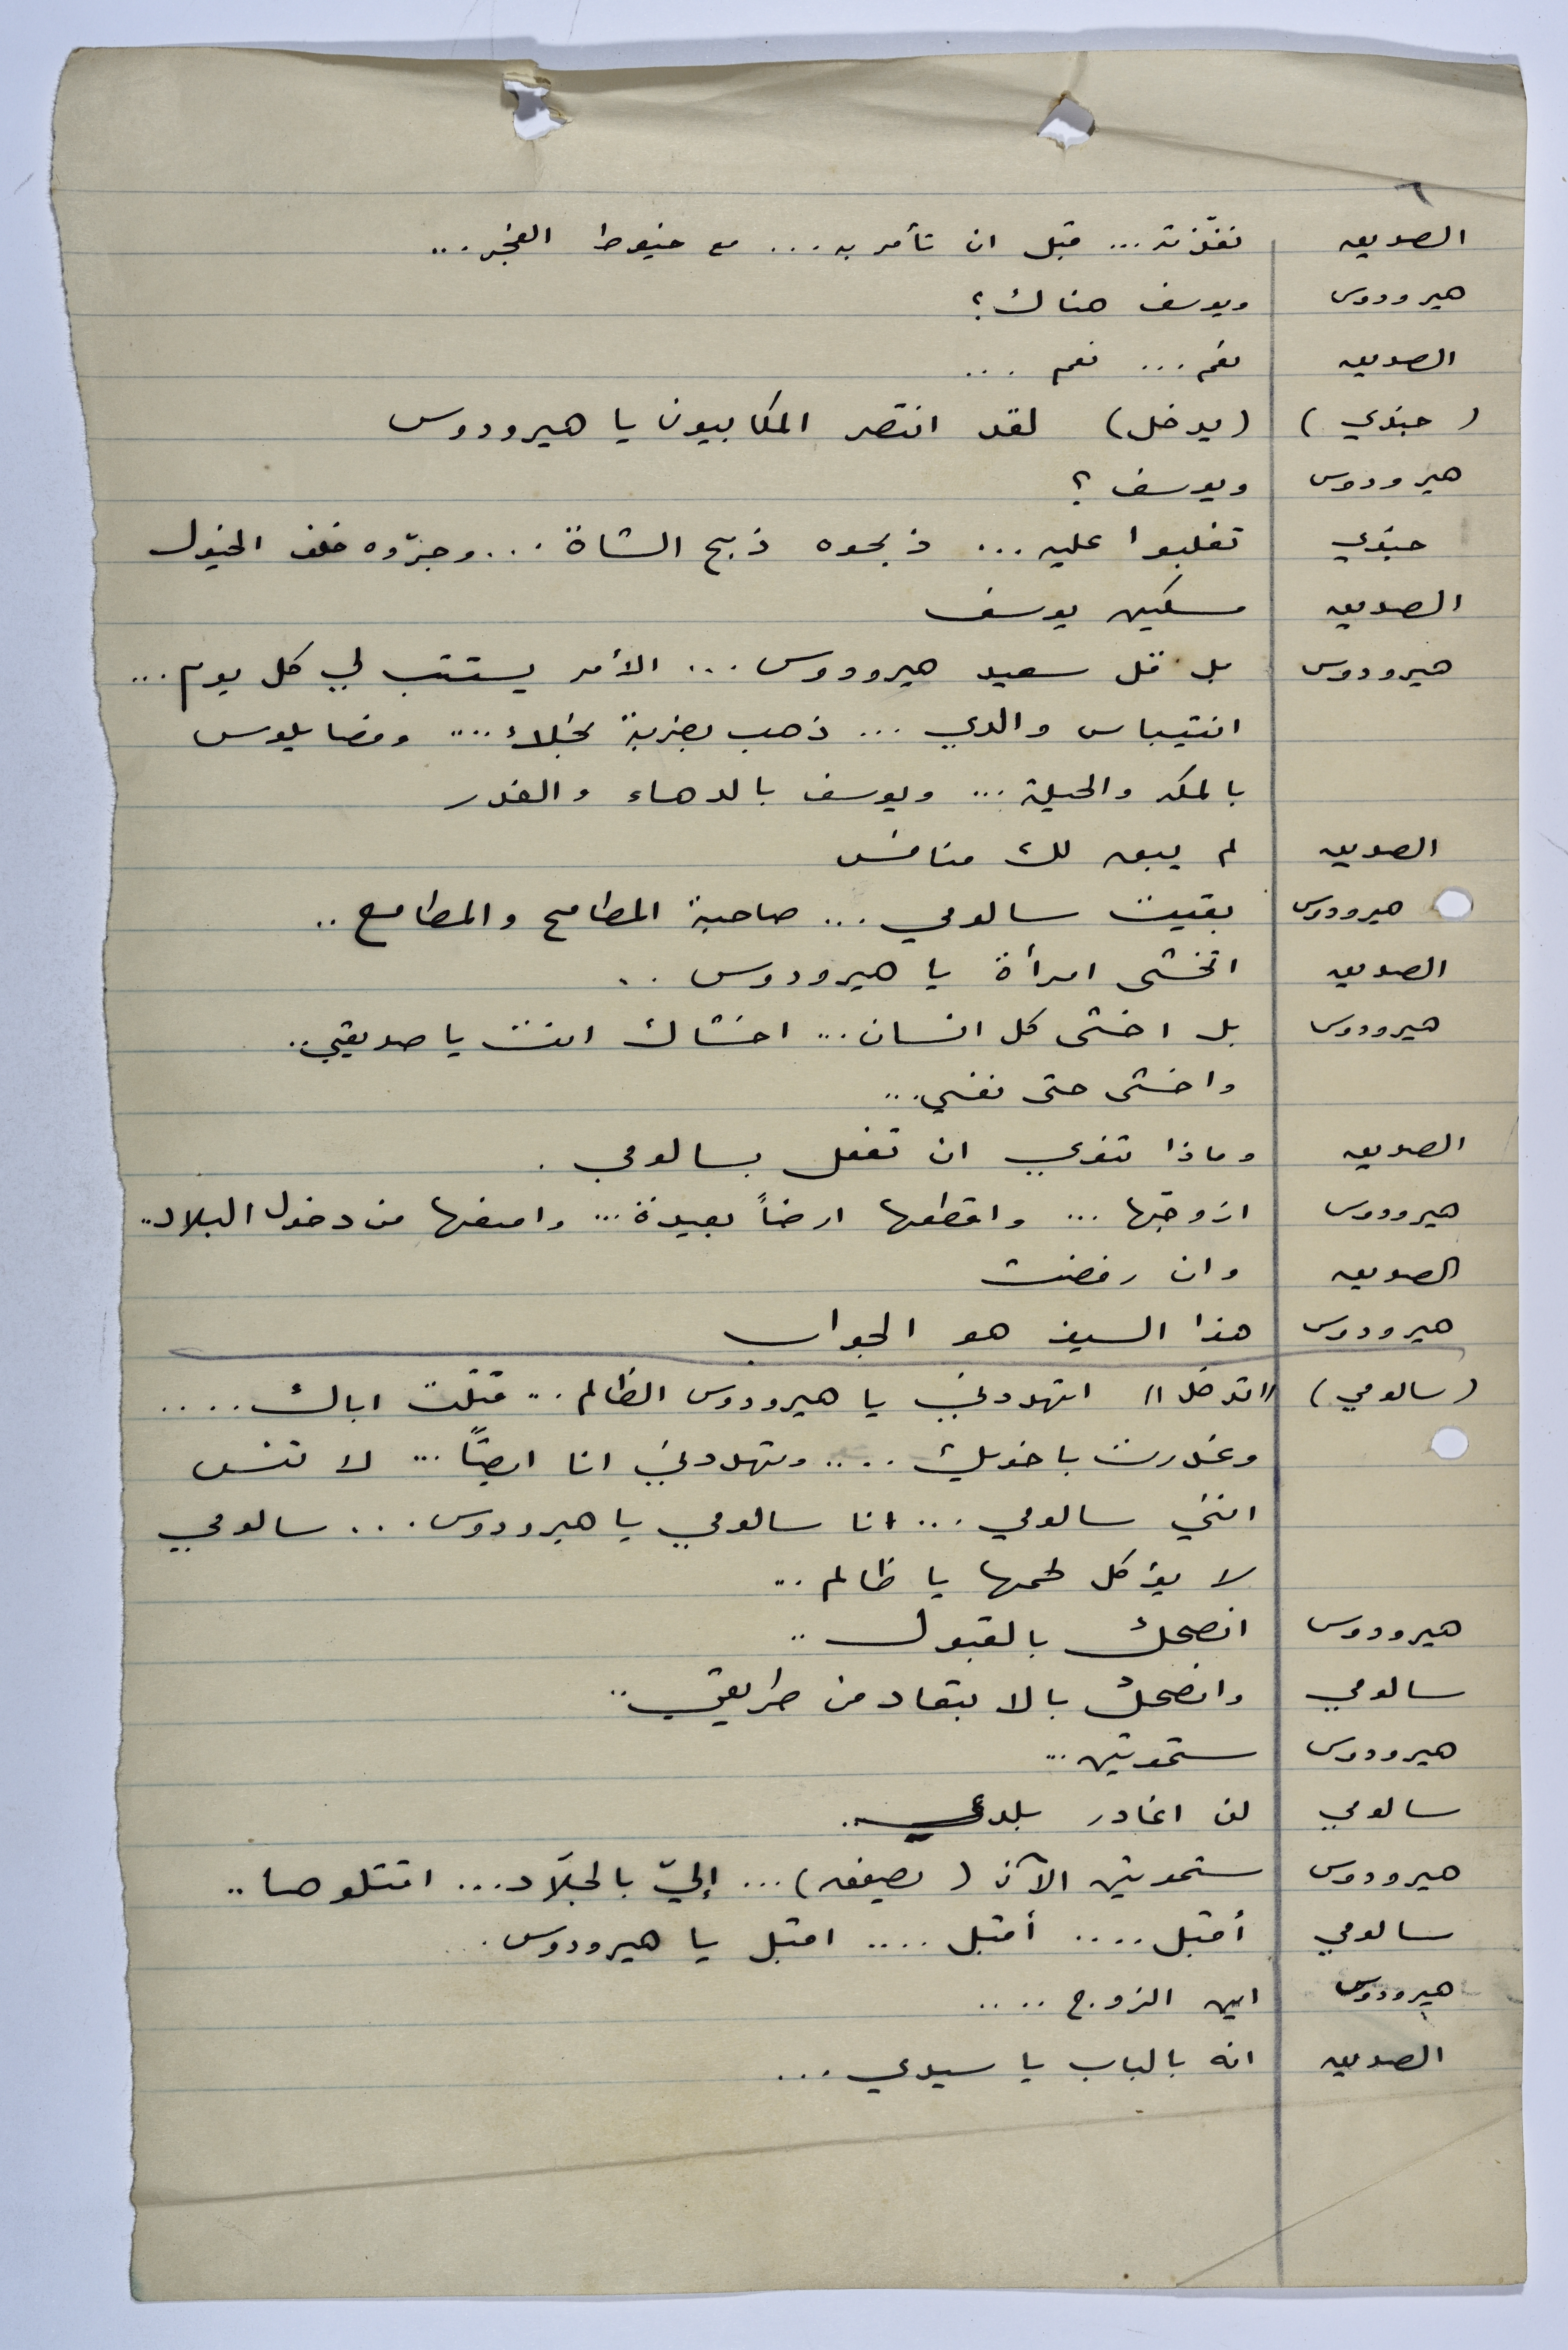 ٦
الصديق نفّذته... قبل ان تأمر به... مع خيوط الفجر...
هيرودوس ويوسف هناك؟
الصديق نعم... نعم...
(جندي) (يدخل) لقد انتصر المكابيون يا هيرودوس
هيرودوس ويوسف؟
جندي تغلبوا عليه... ذبحوه ذبح الشاة... وجرّوه خلف الخيول
الصديق مسكين يوسف
هيرودوس بل قل سعيد هيرودوس... الأمر يستتب لي كل يوم...
انتيباس والدي... ذهب بضربة نجلاء.... وفضايلوس
بالمكر والحيلة... ويوسف بالدهاء والغدر
الصديق لم يبق لك منافس
هيرودوس بقيت سالومي... صاحبة المطامح والمطامع..
الصديق اتخشى امرأة يا هيرودوس..
هيرودوس بل اخشى كل انسان... اخشاك انت يا صديقي..
واخشى حتى نفسي...
الصديق وماذا تنوي ان تفعل بسالومي.
هيرودوس ازوجها... واقطعها ارضاً بعيدة... وامنعها من دخول البلاد..
الصديق وان رفضت
هيرودوس هذا السيف هو الجواب
(سالومي) ((تدخل)) اتهددني يا هيرودوس الظالم... قتلت اباك....
وغدرت باخويك.... وتهددني انا ايضًا... لا تنس
انني سالومي... انا سالومي يا هيرودوس... سالومي
لا يؤكل لحمها يا ظالم...
هيرودوس انصحك بالقبول..
سالومي وانصحك بالابتعاد من طريقي..
هيرودوس ستموتين...
سالومي لن اغادر بلدي.
هيرودوس ستموتين الآن (يصفق)... إليّ بالجلّاد... اقتلوها..
سالومي أقبل.... أقبل.... اقبل يا هيرودوس.
هيرودوس اين الزوج....
الصديق انه بالباب يا سيدي...